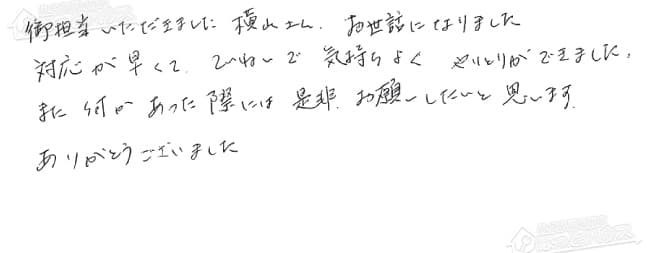 御担当いただきました横山さん、お世話になりました
対応が早くて、ていねいで気持ちよくやりとりができました。
また何かあった際には是非、お願いしたいと思います。
ありがとうございました